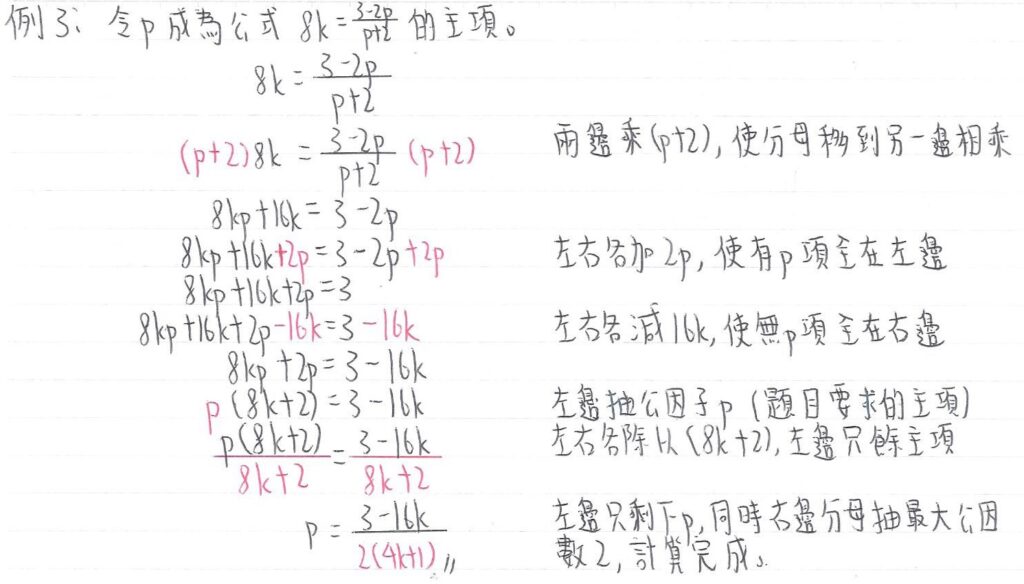 例3: 令p成為公式 8k = (3-2p)/(p+2) 的主項。
8k = (3-2p)/(p+2)
(p+2)8k = (3-2p)/(p+2) (p+2) 兩邊乘(p+2), 使分母移到另一邊相乘
8kp+16k = 3-2p
8kp+16k+2p = 3-2p+2p 左右各加2p, 使有p項全在左邊
8kp+16k+2p = 3
8kp+16k+2p-16k = 3-16k 左右各減16k, 使無p項全在右邊
8kp+2p = 3-16k
p(8k+2) = 3-16k 左邊抽公因子p (題目要求的主項)
p(8k+2)/(8k+2) = (3-16k)/(8k+2) 左右各除以(8k+2), 左邊只餘主項
p = (3-16k)/(2(4k+1)) 左邊只剩下p, 同時右邊分母抽最大公因
數2, 計算完成。